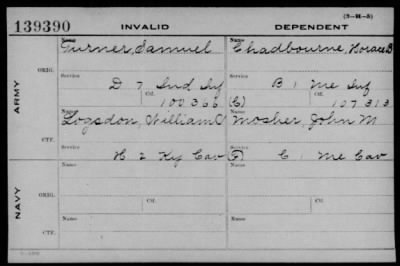 (3-H-5)
139390 INVALID DEPENDENT
Name
Turner, Samuel Chadbourne, Horace B
ARMY
ORIG.
Service Service
D 7 Ind Inf B 1 Me Inf
Ctf. Ctf.
100366 (C) 107313
Name Name
Logsdon, William C Mosher, John M
CTF.
Service Service
H 2 Ky Cav (F) C 1 Me Cav
NAVY
Name Name
ORIG.
Service Ctf. Service Ctf.
Name Name
CTF.
Service Service